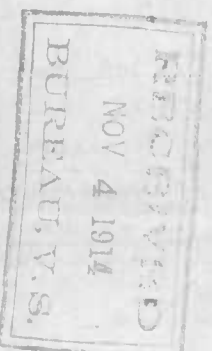 RECEIVED
NOV 4 1914
BUREAU, V. S.